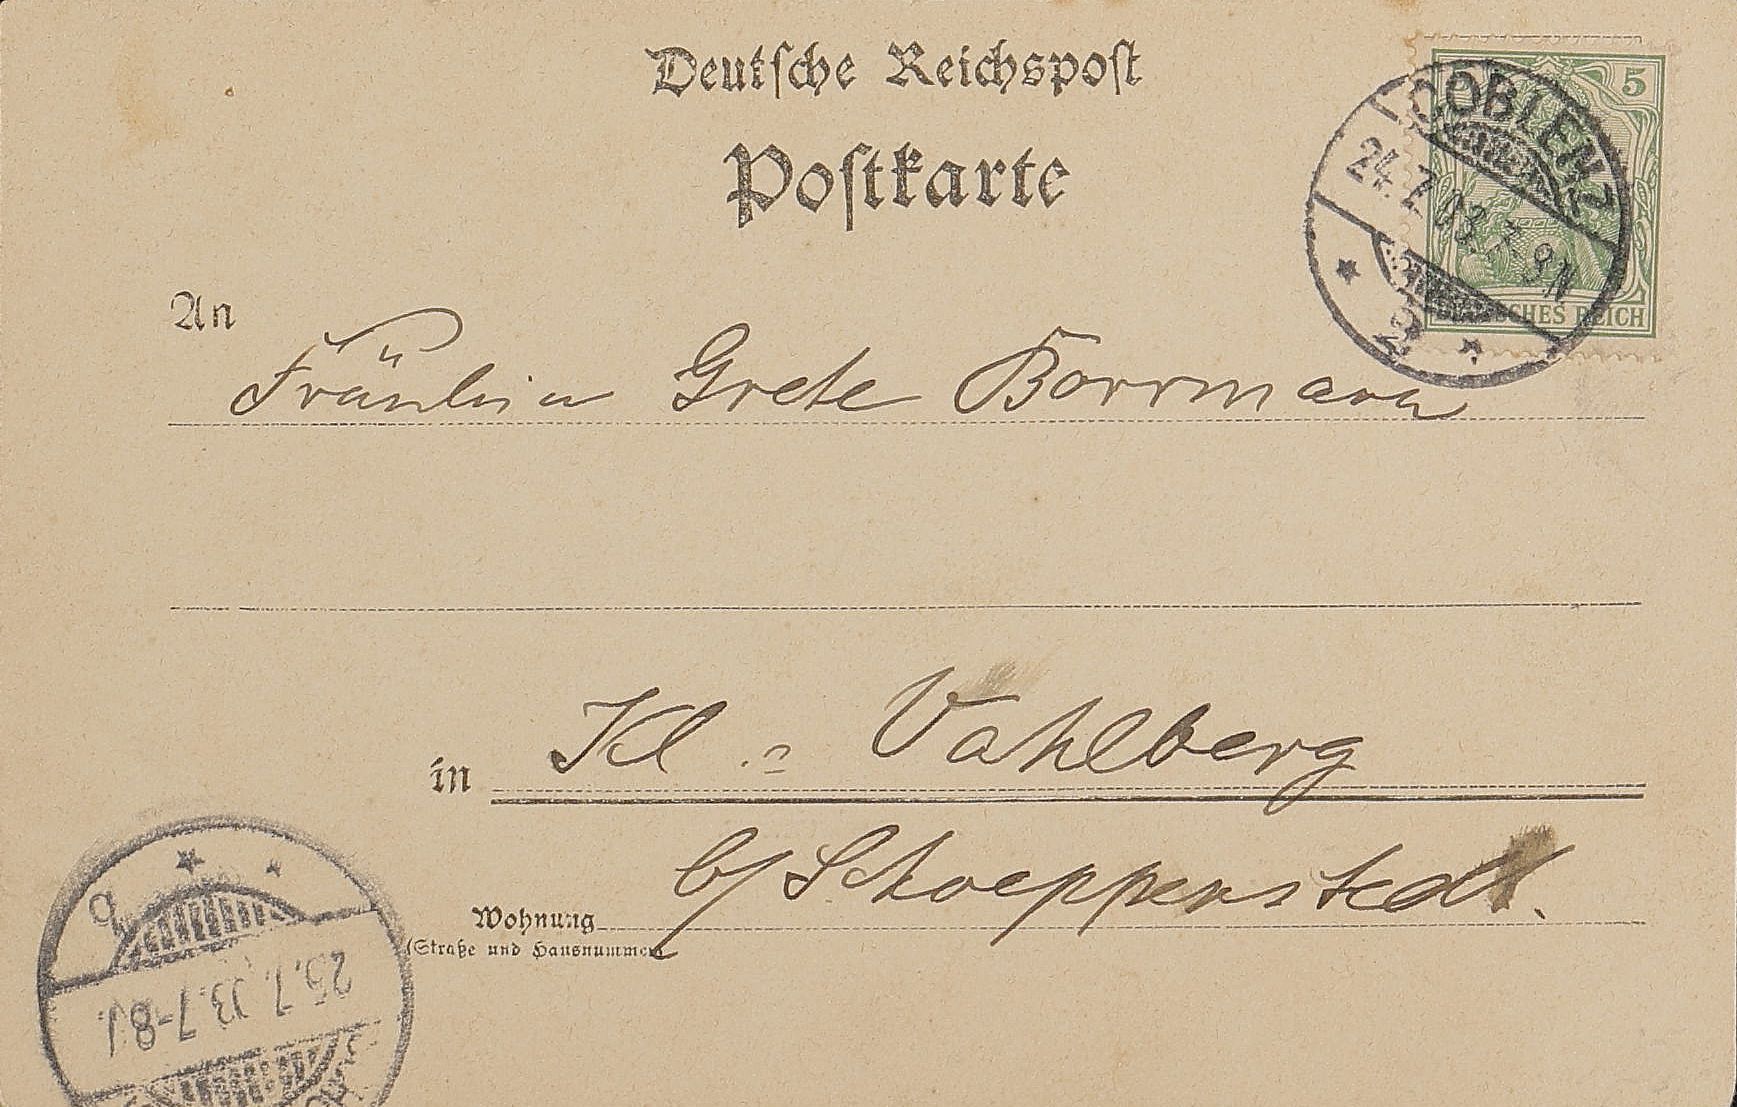 Deutsche Reichspost
Postkarte
5
COBLENZ
24.7.03.7-8N
2
DEUTSCHES REICH
An
Fräulein Grete Borrmann
in Kl. Vahlberg
b/Schoeppenstedt.
Wohnung
(Straße und Hausnummer)
25.7.03.7-8